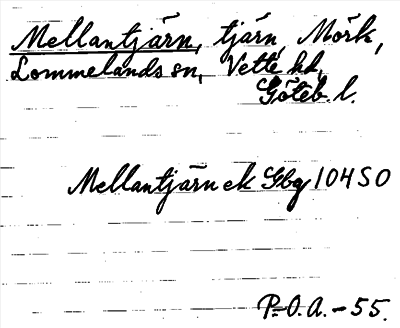 Mellantjärn, tjärn, Mörk,
Lommelands sn, Vette hd,
Göteb. l.
Mellantjärn ek Gbg 104 SO
P.O.A. - 55.